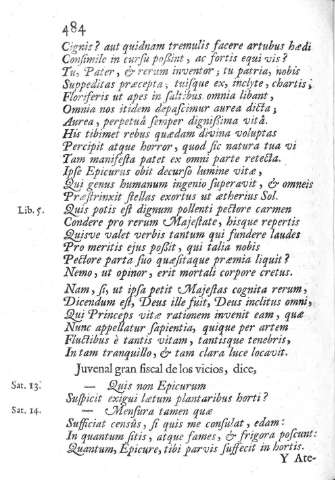 484
Cignis? aut quidnam tremulis facere artubus hædi
Consimile in cursu possint, ac fortis equi vis?
Tu, Pater, & rerum inventor; tu patria, nobis
Suppeditas præcepta; tuisque ex, inclyte, chartis;
Floriferis ut apes in saltibus omnia libant,
Omnia nos itidem depascimur aurea dicta;
Aurea, perpetuâ semper dignissima vitâ.
His tibimet rebus quædam divina voluptas
Percipit atque horror, quod sic natura tua vi
Tam manifesta patet ex omni parte retecta.
Ipse Epicurus obit decurso lumine vitæ,
Qui genus humanum ingenio superavit, & omneis
Præstrinxit stellas exortus ut ætherius Sol.
Lib. 5. Quis potis est dignum pollenti pectore carmen
Condere pro rerum Majestate, hisque repertis
Quisve valet verbis tantum qui fundere laudes
Pro meritis ejus possit, qui talia nobis
Pectore parta suo quæsitaque præmia liquit?
Nemo, ut opinor, erit mortali corpore cretus.
Nam, si, ut ipsa petit Majestas cognita rerum,
Dicendum est, Deus ille fuit, Deus inclitus omni,
Qui Princeps vitæ rationem invenit eam, quæ
Nunc appellatur sapientia, quique per artem
Fluctibus è tantis vitam, tantisque tenebris,
In tam tranquillo, & tam clara luce locavit.
Juvenal gran fiscal de los vicios, dice,
Sat. 13. — Quis non Epicurum
Suspicit exigui lætum plantaribus horti?
Sat. 14. — Mensura tamen quæ
Sufficiat censûs, si quis me consulat, edam:
In quantum sitis, atque fames, & frigora poscunt:
Quantum, Epicure, tibi parvis suffecit in hortis.
Y Ate-